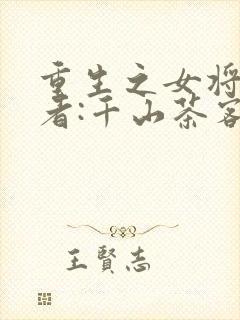 重生之女将
者:千山茶客
王賢志